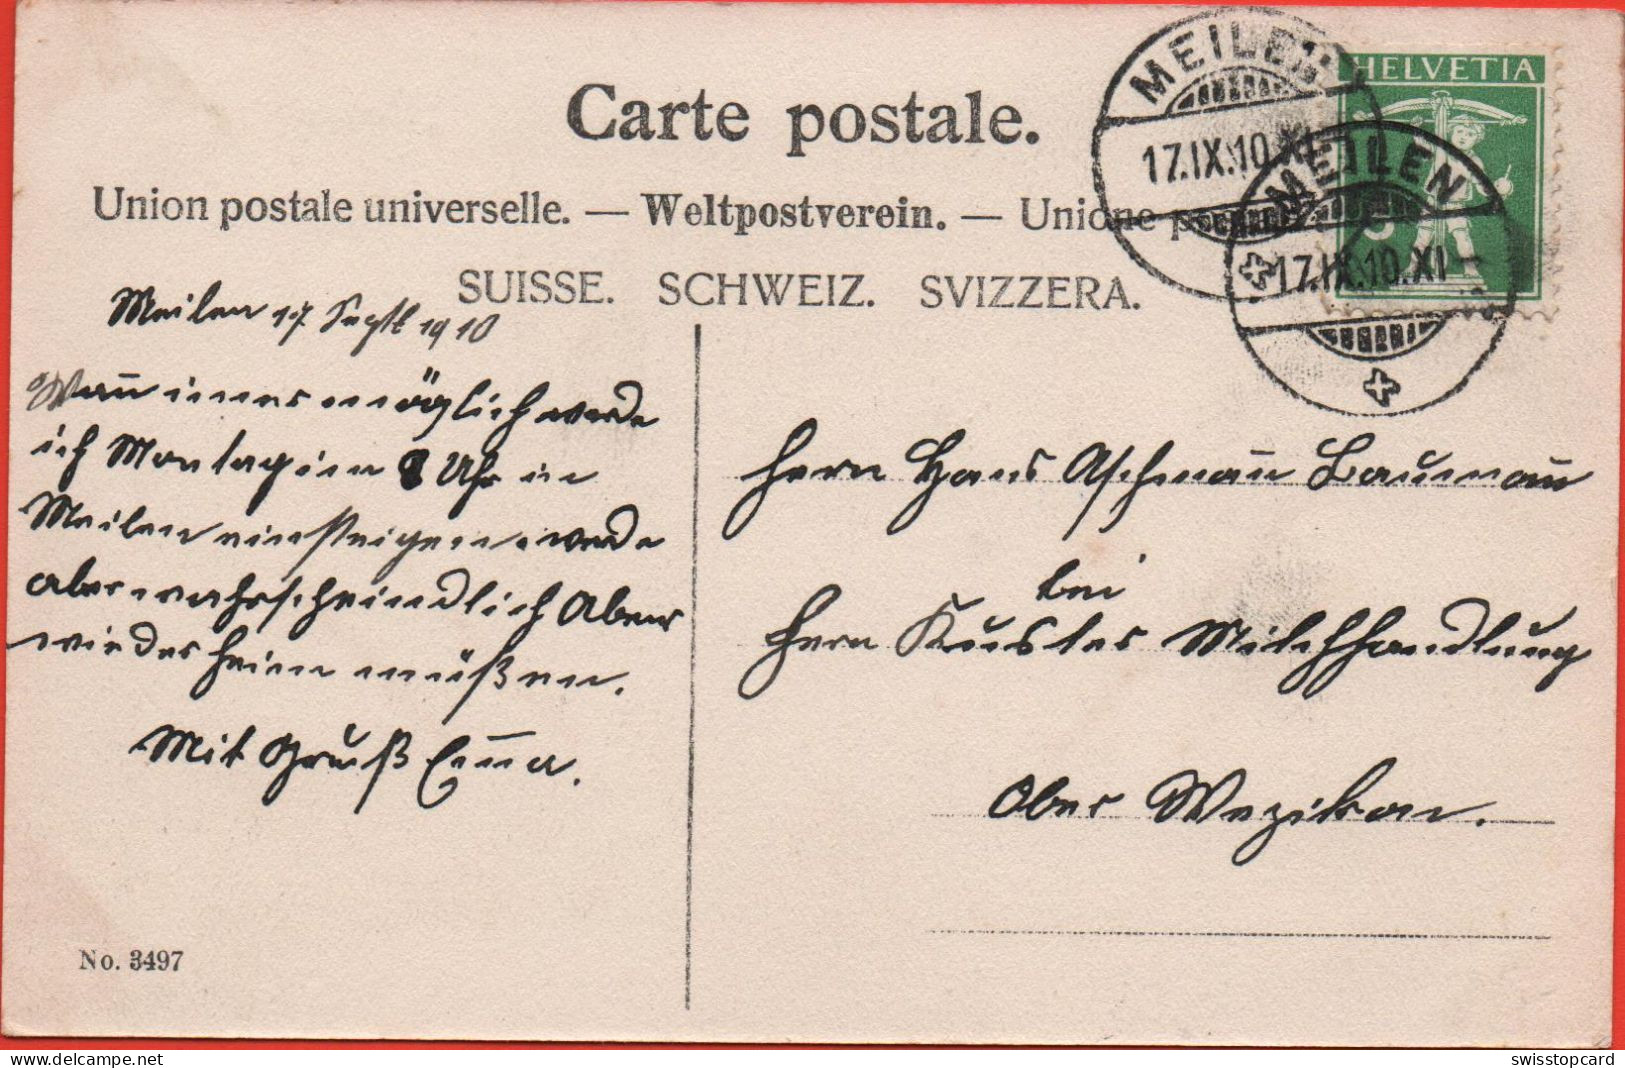 Carte postale.
Union postale universelle. — Weltpostverein. — Unione
SUISSE. SCHWEIZ. SVIZZERA.
HELVETIA
MEILEN
17.IX.10.XI
MEILEN
17.IX.10.XI
Meilen 17. Sept 1910
Wan̄ immer möglich werde
ich Montag um 8 Uhr in
Meilen einsteigen. werde
aber wahrscheindlich Abens
wieder heim müßen.
Mit Gruß Em̄a.
Herrn Hans Aschman̄ Bauman̄
bei
Herrn Kuster Milchhandlung
Ober Wezikon.
No. 3497
swisstopcard